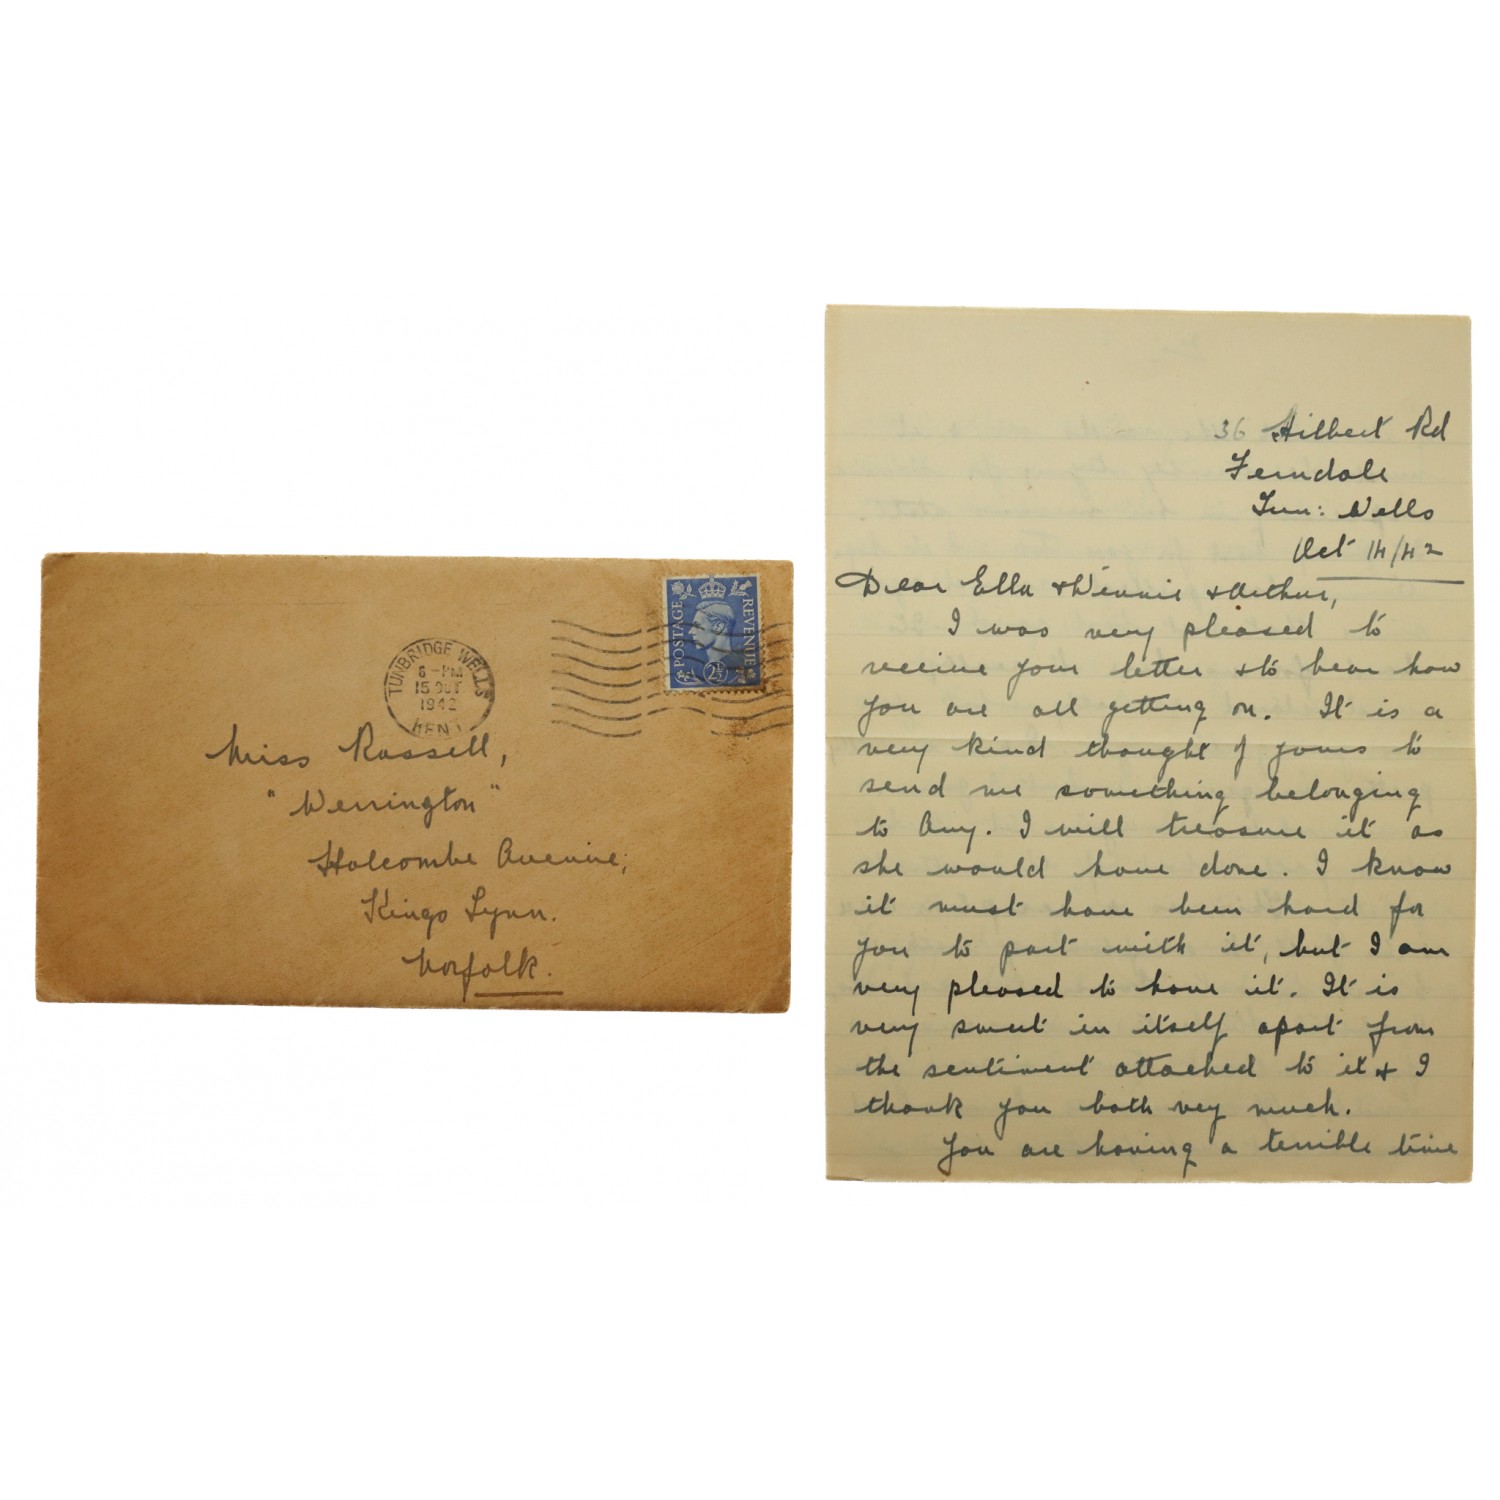 TUNBRIDGE WELLS
6 - PM
15 OCT
1942
KENT
POSTAGE REVENUE
2½
Miss Russell,
"Werrington"
Holcombe Avenue,
Kings Lynn.
Norfolk.
36 Hilbert Rd
Ferndale
Tun: Wells
Oct 14/42
Dear Ella & Winnie & Arthur,
I was very pleased to
receive your letter & to hear how
you are all getting on. It is a
very kind thought of yours to
send me something belonging
to Amy. I will treasure it as
she would have done. I know
it must have been hard for
you to part with it, but I am
very pleased to have it. It is
very sweet in itself apart from
the sentiment attached to it & I
thank you both very much.
You are having a terrible time